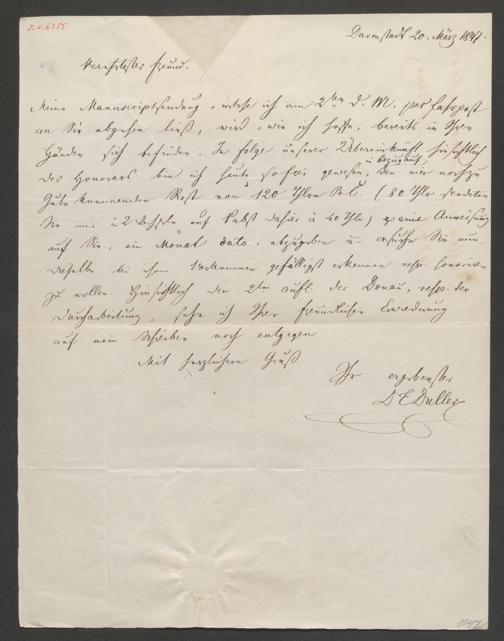 J.N. 6355
Darmstadt 20. März 1847.
Verehrtester Freund.
Meine Manuscriptsendung, welche ich am 2ten d. M. per Fahrpost
an Sie abgehen ließ, wird, wie ich hoffe, bereits in Ihren
Händen sich befinden. In Folge unserer Übereinkunft hinsichtlich
des Honorars bin ich heute so frei gewesen, den mir noch zu
in Bezug auf
Gute kommenden Rest von 120 Thlrn (80 Thlr sendeten
Sie mir in 2 Wechseln auf Pabst dahier à 40 Thlr) eine Anweisung
auf Sie, ein Monat dato, abzugeben u. ersuche Sie nun,
dieselbe bei ihrem Vorkommen gefälligst erkennen resp. honoriren
zu wollen. Hinsichtlich der 2ten Aufl. der Donau, resp. der
Durcharbeitung, sehe ich Ihrer freundlichen Erwiederung
auf mein Schreiben noch entgegen
Mit herzlichem Gruß
Ihr ergebenster
D E Duller
1847